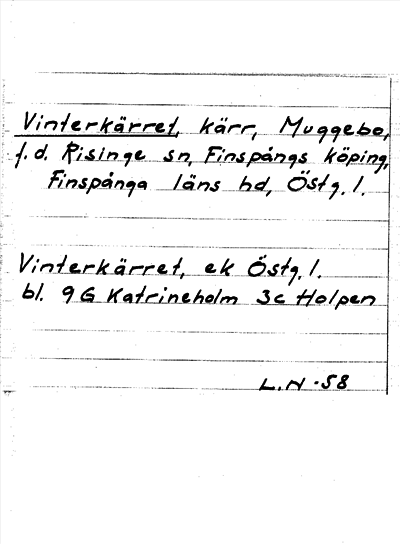 Vinterkärret, kärr, Muggebo,
f.d. Risinge sn, Finspångs köping,
Finspånga läns hd, Östg.l.
Vinterkärret, ek Östg.l.
bl. 9G Katrineholm 3c Holpen
L.N -58